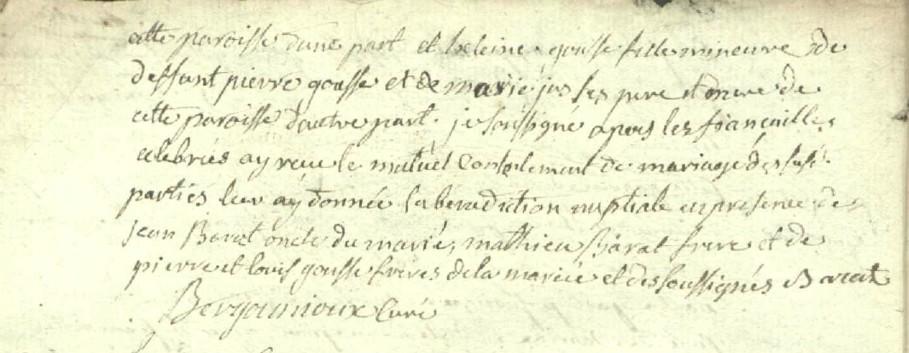 cette paroisse dune part et heleine gousse fille mineure de
deffunt pierre gousse et de marie jus ses pere et mere de
cette paroisse dautre part. je soussigné apres les fiancailles
celebries ay recu le mutuel consentement de mariage des susd.
parties leur ay donnée la benediction nuptiale en presence de
jean Barat oncle du marié, mathieu Barat frere et de
pierre et louis gousse freres de la mariée et des soussignés Barat
Bergounioux Curé